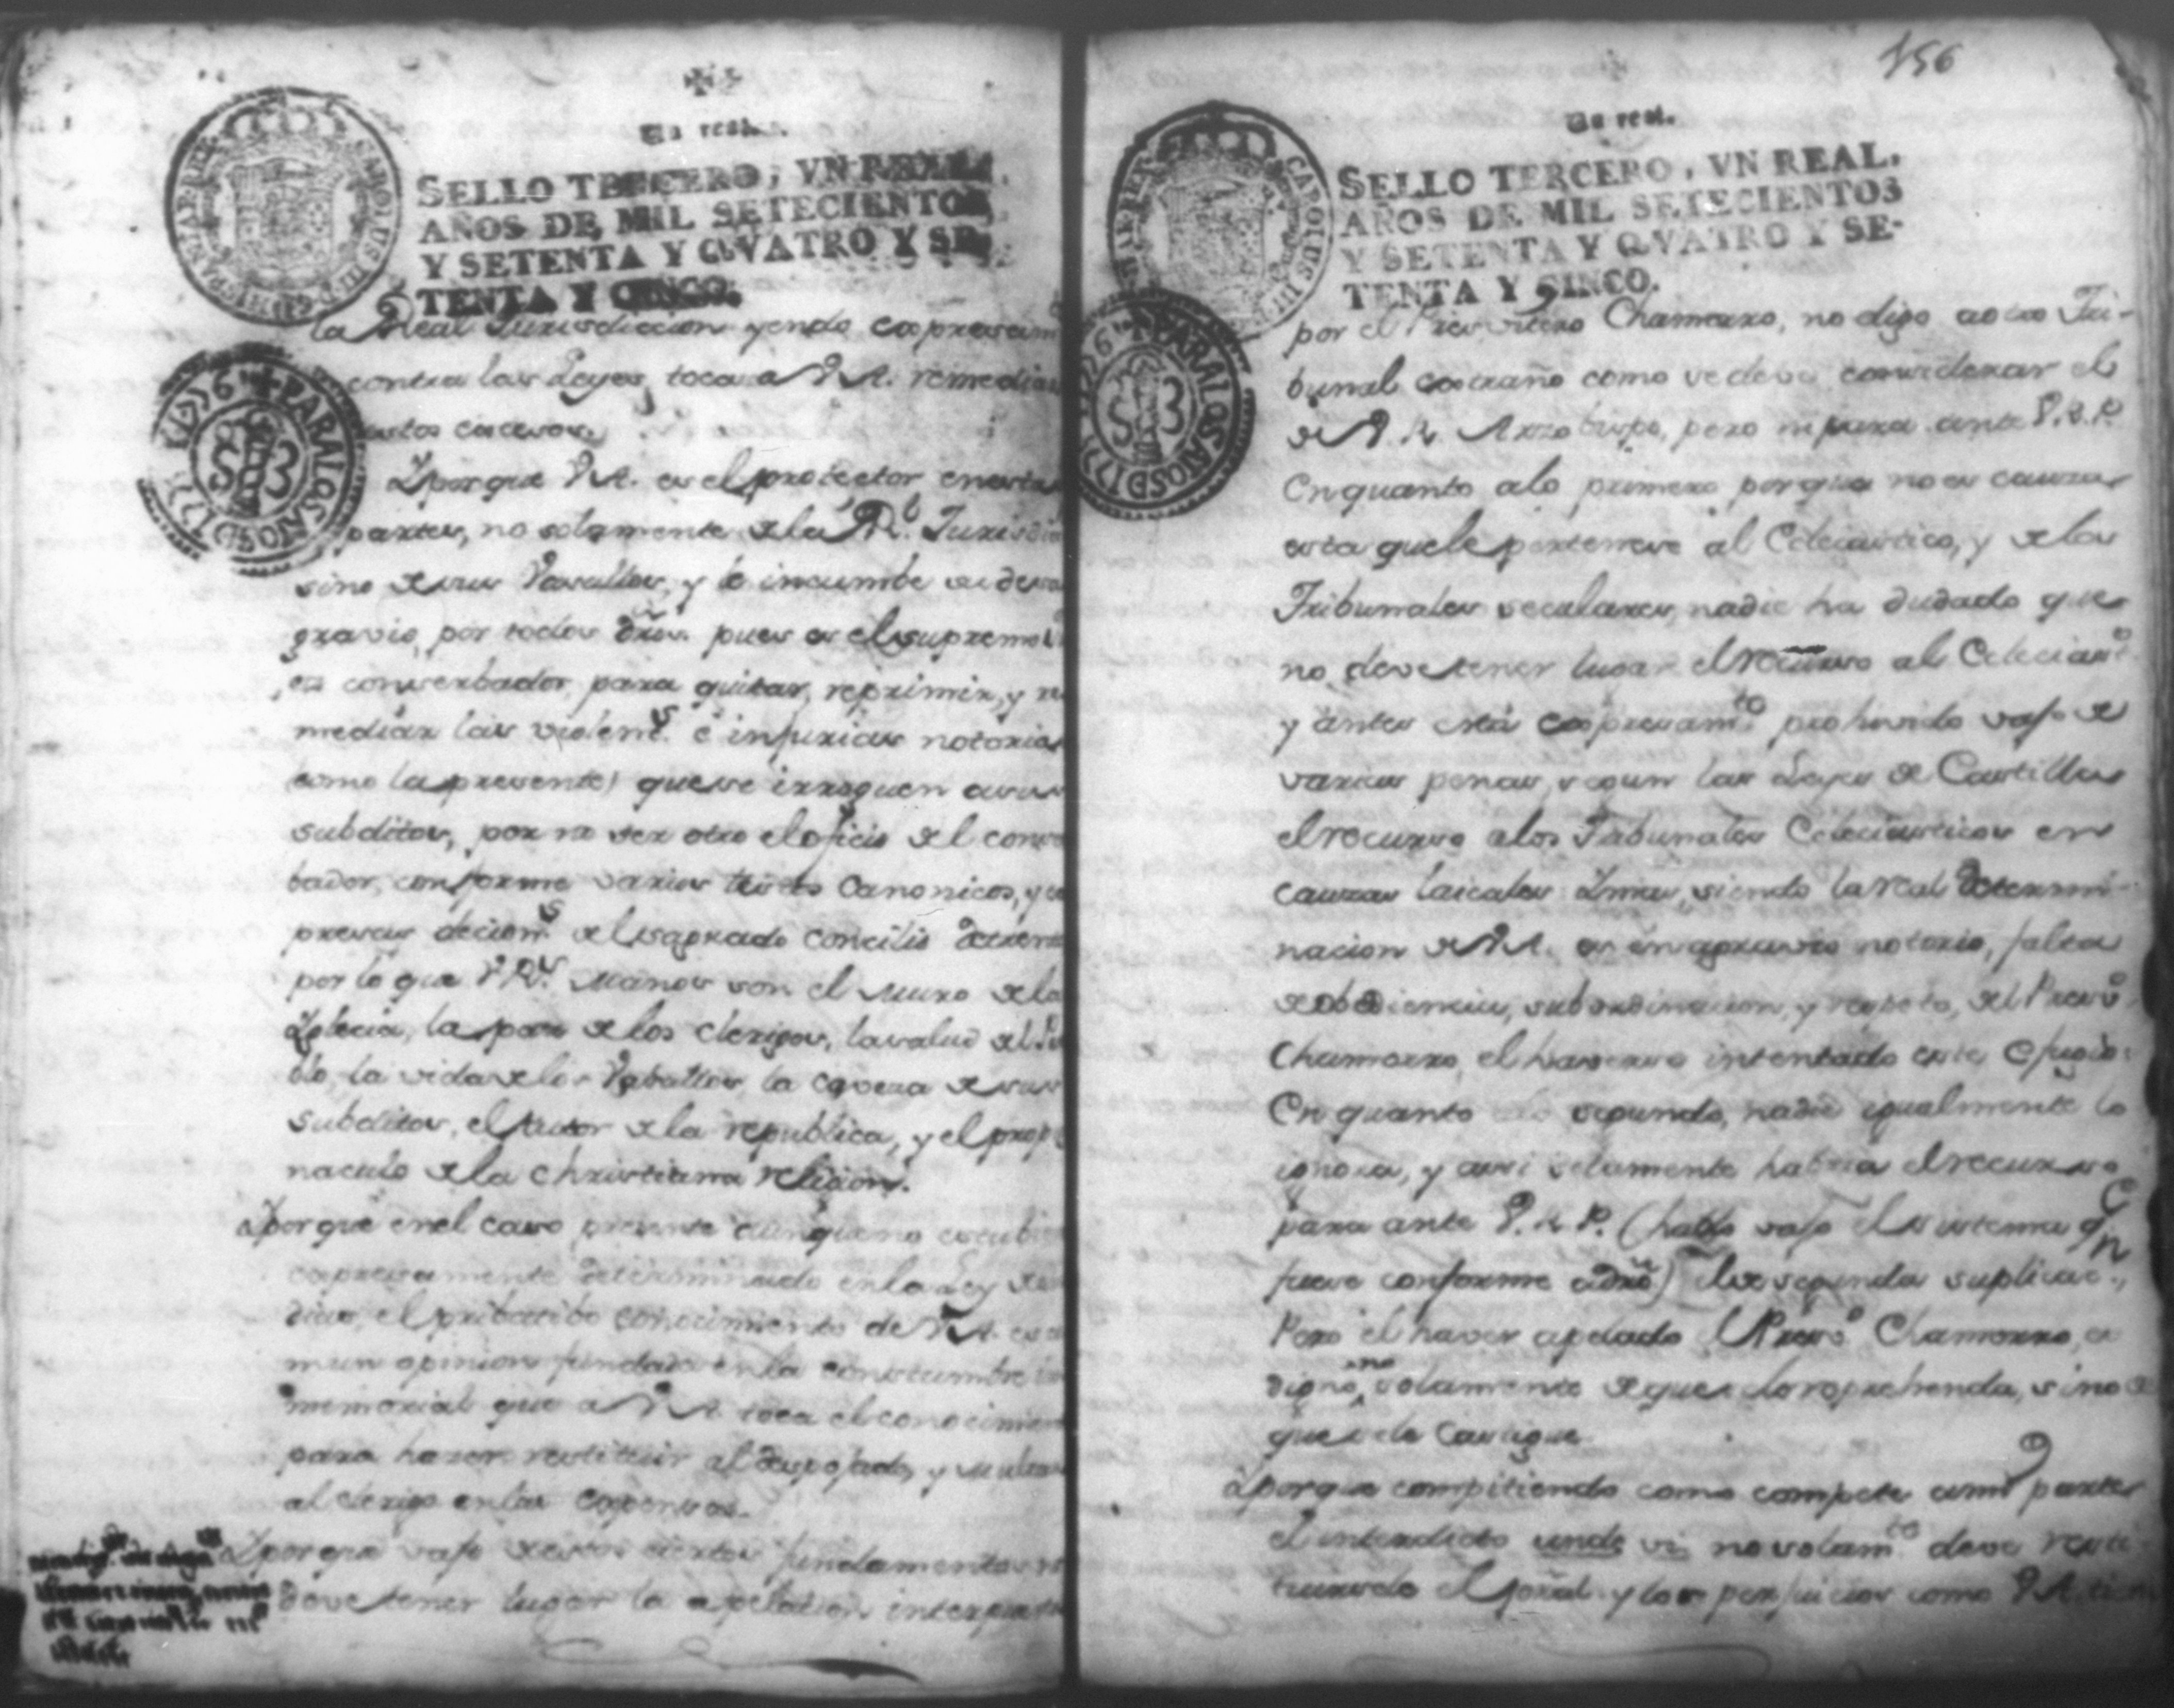 Un real.
SELLO TERCERO, VN REAL,
AÑOS DE MIL SETECIENTOS
Y SETENTA Y QVATRO Y SE-
TENTA Y CINCO.
la Real Jurisdiccion yendo expresam
contra las Leyes, toca a V.A. remediar
estos excesos.
Y porque V.A. es el protector en estas
partes, no solamente de la Rl. Jurisdic
sino de sus Vasallos, y le incumbe su desa
gravio, por todos dros. pues es el supremo
conserbador para quitar, reprimir, y re
mediar las violens. e injurias notorias
como la presente) que se irroguen a sus
subditos, por no ser otro el oficio del conser
bador, conforme varios textos Canonicos, y ex
presas decions. del sagrado concilio de trento
por lo que Manos son el muro de la
Yglecia, la paz de los clerigos, la salud del
blo, la vida de los Vaballos, la caveza de sus
subditos, el tutor de la republica, y el propug
naculo de la christiana religion.
Y porque en el caso presente aunque no estubie
expresamente determinado en la Ley
el pribatibo conocimiento de V.A. es co
mun opinion fundada en la constumbre in
memorial que a V.A. toca el conocimien
para hazer restituir al despojado, y multar
al clerigo en las expensas.
Y porque vajo de estos ciertos fundamentos no
deve tener lugar la apelacion interpuesta
PARA LOS AÑOS D 1776 Y 177
S 3
156
Un real.
SELLO TERCERO, VN REAL,
AÑOS DE MIL SETECIENTOS
Y SETENTA Y QVATRO Y SE-
TENTA Y CINCO.
por el Presvitero Chamorro, no digo a otro Tri-
bunal extraño como se deve considerar el
de V. R. Arzobispo, pero ni para ante V.R.P.
En quanto a lo primero porque no es cauza
esta que le pertenese al Eclesiastico, y de los
Tribunales seculares, nadie ha dudado que
no deve tener lugar el recurso al Eclesiasco.
y antes está expresamto. prohivido vajo de
varias penas, segun las Leyes de Castilla
el recurso a los Tribunales Eclesiasticos en
cauzas laicales Y mas, siendo la real determi-
nacion de V.A. es un agravio notorio, falta
de obediencia, subordinacion, y respeto, del Presvo.
Chamorro, el haverse intentado este efugio:
En quanto a lo segundo, nadie igualmente lo
ignora, y assi solamente habria el recurso
para ante V.R.P. (hablo vajo el sistema qe.
fuese conforme a dro) el de segunda suplicacn.,
Pero el haver apelado el Presvo. Chamorro, es
digno, no solamente de que se lo reprehenda, sino de
que se le castigue.
Y porque compitiendo como compete a mi parte
el interdicto unde vi no solamte. deve resti
tuirsele el y los perjuicios como V.A. tiene
PARA LOS AÑOS D 1776 Y 177
S 3